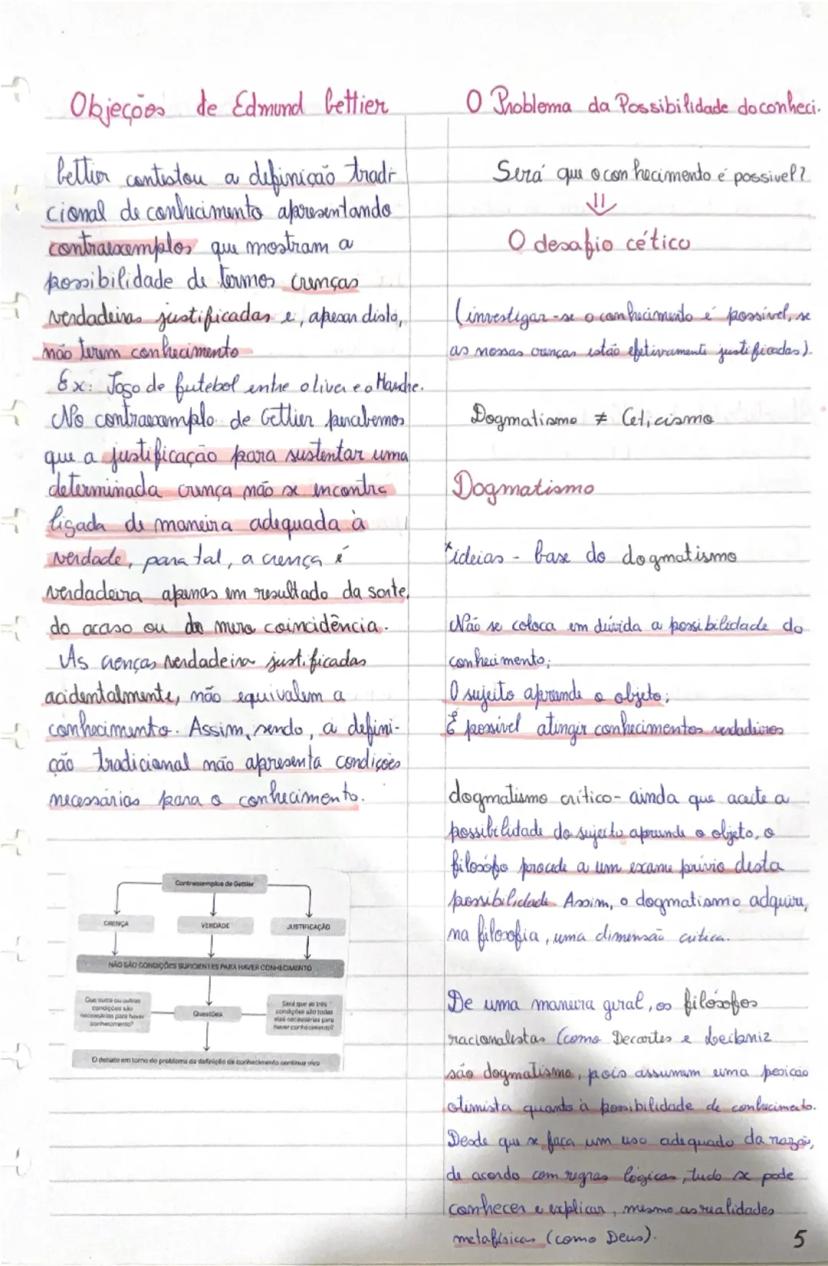 Objeções de Edmund Gettier
Gettier contestou a definição tradi-
cional de conhecimento apresentando
contraexemplos que mostram a
possibilidade de termos crenças
verdadeiras justificadas e, apesar disto,
não terem conhecimento
Ex: Jogo de futebol entre o liver e o Manche.
No contraexemplo de Gettier percebemos
que a justificação para sustentar uma
determinada crença não se encontra
ligada de maneira adequada à
verdade, para tal, a crença é
verdadeira apenas em resultado da sorte,
do acaso ou de mera coincidência.
As crenças verdadeira justificadas
acidentalmente, não equivalem a
conhecimento. Assim, sendo, a defini-
ção tradicional não apresenta condições
necessárias para o conhecimento.
Contraexemplos de Gettier
CRENÇA
VERDADE
JUSTIFICAÇÃO
NÃO SÃO CONDIÇÕES SUFICIENTES PARA HAVER CONHECIMENTO
Que outra ou outras
condições são
necessárias para haver
conhecimento?
Questões
Será que as três
condições são todas
elas necessárias para
haver conhecimento?
O debate em torno do problema da definição de conhecimento continua vivo
O Problema da Possibilidade do conheci.
Será que o conhecimento é possivel?
⇓
O desafio cético
(investigar-se o conhecimento é possível, se
as nossas crenças estão efetivamente justificadas).
Dogmatismo ≠ Ceticismo
Dogmatismo
*ideias - base do dogmatismo
Não se coloca em dúvida a possibilidade do
conhecimento;
O sujeito aprende o objeto;
É possível atingir conhecimentos verdadeiros
dogmatismo crítico - ainda que aceite a
possibilidade do sujeito aprende o objeto, o
filósofo procede a um exame prévio desta
possibilidade. Assim, o dogmatismo adquire,
na filosofia, uma dimensão crítica.
De uma maneira geral, os filósofos
racionalistas (como Descartes e Leibniz
são dogmatismo, pois assumem uma posição
otimista quanto à possibilidade de conhecimento.
Desde que se faça um uso adequado da razão,
de acordo com regras lógicas, tudo se pode
conhecer e explicar, mesmo as realidades
metafísicas (como Deus).
5